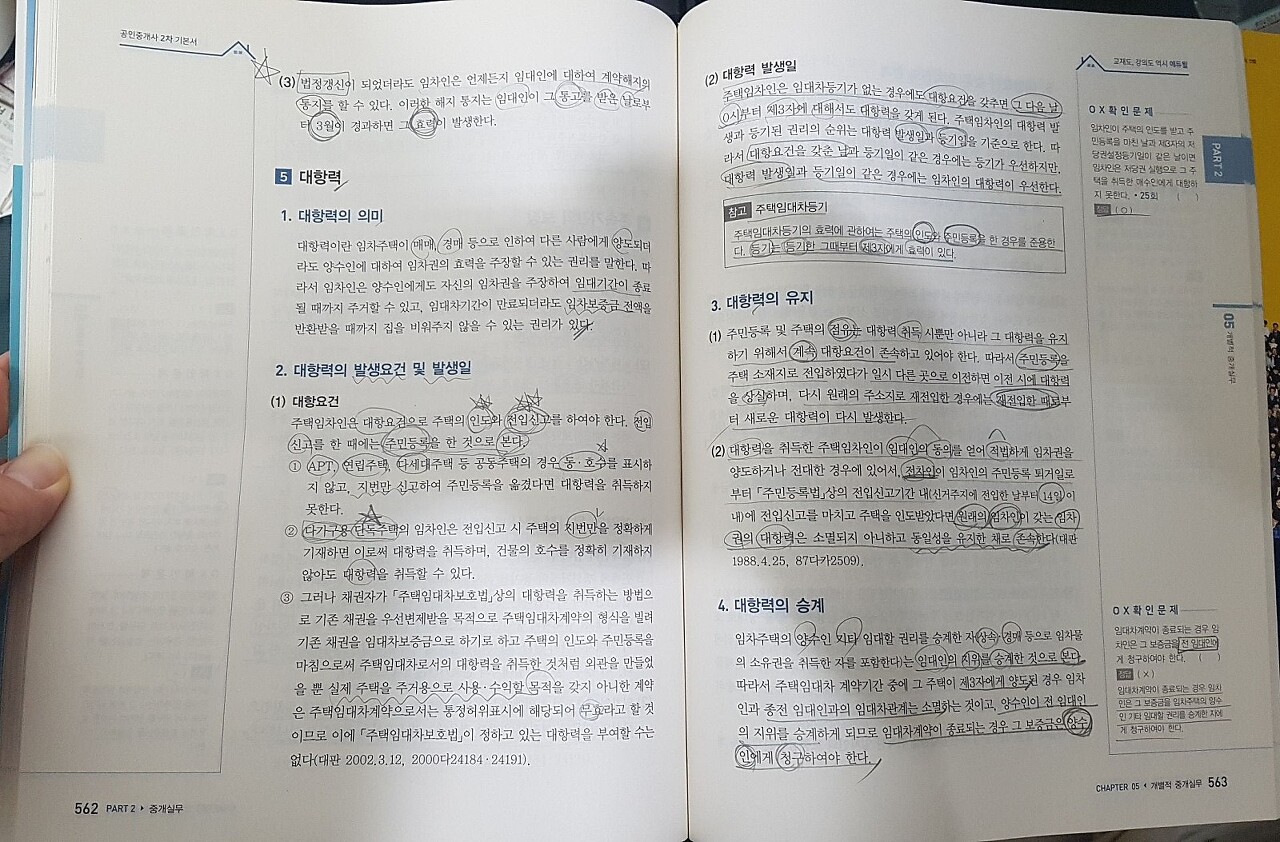 공인중개사 2차 기본서
(3) 법정갱신이 되었더라도 임차인은 언제든지 임대인에 대하여 계약해지의
통지를 할 수 있다. 이러한 해지 통지는 임대인이 그 통고를 받은 날로부
터 3월이 경과하면 그 효력이 발생한다.
5 대항력
1. 대항력의 의미
대항력이란 임차주택이 매매, 경매 등으로 인하여 다른 사람에게 양도되더
라도 양수인에 대하여 임차권의 효력을 주장할 수 있는 권리를 말한다. 따
라서 임차인은 양수인에게도 자신의 임차권을 주장하여 임대기간이 종료
될 때까지 주거할 수 있고, 임대차기간이 만료되더라도 임차보증금 전액을
반환받을 때까지 집을 비워주지 않을 수 있는 권리가 있다.
2. 대항력의 발생요건 및 발생일
(1) 대항요건
주택임차인은 대항요건으로 주택의 인도와 전입신고를 하여야 한다. 전입
신고를 한 때에는 주민등록을 한 것으로 본다.
① APT, 연립주택, 다세대주택 등 공동주택의 경우 동·호수를 표시하
지 않고, 지번만 신고하여 주민등록을 옮겼다면 대항력을 취득하지
못한다.
② 다가구용 단독주택의 임차인은 전입신고 시 주택의 지번만을 정확하게
기재하면 이로써 대항력을 취득하며, 건물의 호수를 정확히 기재하지
않아도 대항력을 취득할 수 있다.
③ 그러나 채권자가 「주택임대차보호법」상의 대항력을 취득하는 방법으
로 기존 채권을 우선변제받을 목적으로 주택임대차계약의 형식을 빌려
기존 채권을 임대차보증금으로 하기로 하고 주택의 인도와 주민등록을
마침으로써 주택임대차로서의 대항력을 취득한 것처럼 외관을 만들었
을 뿐 실제 주택을 주거용으로 사용·수익할 목적을 갖지 아니한 계약
은 주택임대차계약으로서는 통정허위표시에 해당되어 무효라고 할 것
이므로 이에 「주택임대차보호법」이 정하고 있는 대항력을 부여할 수는
없다(대판 2002.3.12, 2000다24184·24191).
562 PART 2 ▸ 중개실무
교재도, 강의도 역시 에듀윌
(2) 대항력 발생일
주택임차인은 임대차등기가 없는 경우에도 대항요건을 갖추면 그 다음 날
0시부터 제3자에 대해서도 대항력을 갖게 된다. 주택임차인의 대항력 발
생과 등기된 권리의 순위는 대항력 발생일과 등기일을 기준으로 한다. 따
라서 대항요건을 갖춘 날과 등기일이 같은 경우에는 등기가 우선하지만,
대항력 발생일과 등기일이 같은 경우에는 임차인의 대항력이 우선한다.
참고 주택임대차등기
주택임대차등기의 효력에 관하여는 주택의 인도와 주민등록을 한 경우를 준용한
다. 등기는 등기한 그때부터 제3자에게 효력이 있다.
3. 대항력의 유지
(1) 주민등록 및 주택의 점유는 대항력 취득 시뿐만 아니라 그 대항력을 유지
하기 위해서 계속 대항요건이 존속하고 있어야 한다. 따라서 주민등록을
주택 소재지로 전입하였다가 일시 다른 곳으로 이전하면 이전 시에 대항력
을 상실하며, 다시 원래의 주소지로 재전입한 경우에는 재전입한 때로부
터 새로운 대항력이 다시 발생한다.
(2) 대항력을 취득한 주택임차인이 임대인의 동의를 얻어 적법하게 임차권을
양도하거나 전대한 경우에 있어서, 전차인이 임차인의 주민등록 퇴거일로
부터 「주민등록법」상의 전입신고기간 내(신거주지에 전입한 날부터 14일이
내)에 전입신고를 마치고 주택을 인도받았다면 원래의 임차인이 갖는 임차
권의 대항력은 소멸되지 아니하고 동일성을 유지한 채로 존속한다(대판
1988.4.25, 87다카2509).
4. 대항력의 승계
임차주택의 양수인 기타 임대할 권리를 승계한 자(상속·경매 등으로 임차물
의 소유권을 취득한 자를 포함한다)는 임대인의 지위를 승계한 것으로 본다.
따라서 주택임대차 계약기간 중에 그 주택이 제3자에게 양도된 경우 임차
인과 종전 임대인과의 임대차관계는 소멸하는 것이고, 양수인이 전 임대인
의 지위를 승계하게 되므로 임대차계약이 종료되는 경우 그 보증금은 양수
인에게 청구하여야 한다.
O X 확 인 문 제
임차인이 주택의 인도를 받고 주
민등록을 마친 날과 제3자의 저
당권설정등기일이 같은 날이면
임차인은 저당권 실행으로 그 주
택을 취득한 매수인에게 대항하
지 못한다. • 25회 ( )
정답 ( ○ )
PART 2
05 개별적 중개실무
O X 확 인 문 제
임대차계약이 종료되는 경우 임
차인은 그 보증금을 전 임대인에
게 청구하여야 한다. ( )
정답 ( × )
임대차계약이 종료되는 경우 임차
인은 그 보증금을 임차주택의 양수
인 기타 임대할 권리를 승계한 자에
게 청구하여야 한다.
CHAPTER 05 ◂ 개별적 중개실무 563